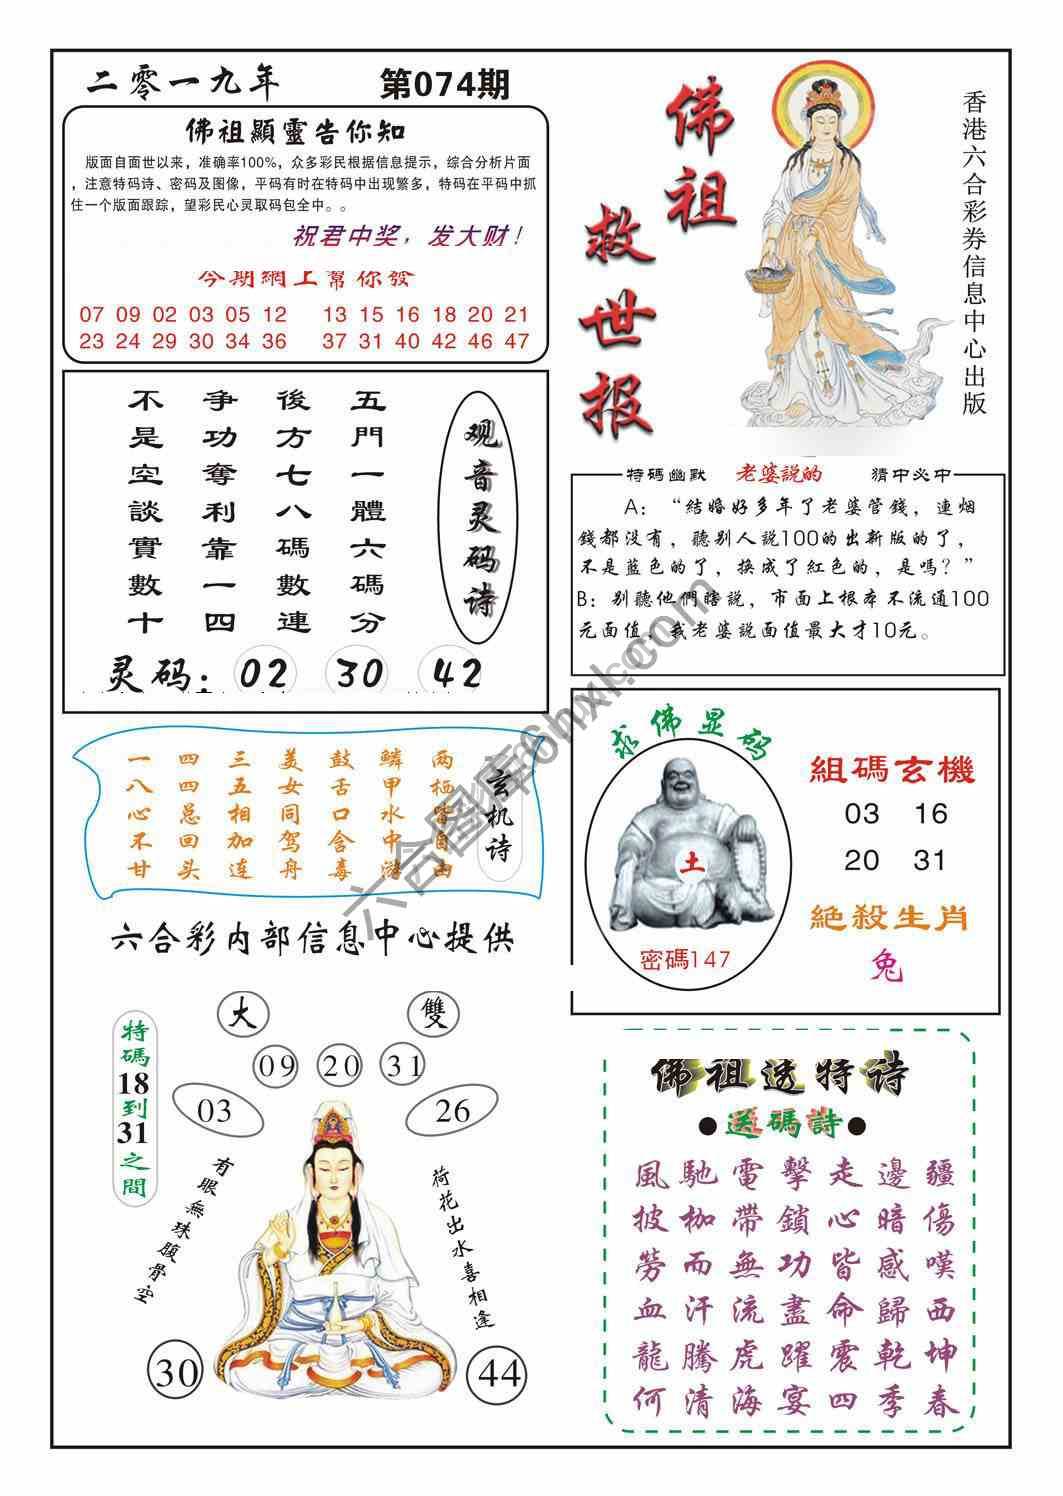 二零一九年
第074期
佛祖顯靈告你知
版面自面世以来，准确率100%，众多彩民根据信息提示，综合分析片面
，注意特码诗、密码及图像，平码有时在特码中出现繁多，特码在平码中抓
住一个版面跟踪，望彩民心灵取码包全中。。
祝君中奖，发大财！
今期網上幫你發
07 09 02 03 05 12 13 15 16 18 20 21
23 24 29 30 34 36 37 31 40 42 46 47
佛祖救世报
香港六合彩券信息中心出版
观音灵码诗
五門一體六碼分
後方七八碼數連
爭功奪利靠一四
不是空談實數十
灵码：02 30 42
特碼幽默 老婆説的 猜中必中
A：“結婚好多年了老婆管錢，連烟
錢都没有，聽别人説100的出新版的了，
不是藍色的了，换成了紅色的，是嗎？”
B：别聽他們瞎説，市面上根本不流通100
元面值，我老婆説面值最大才10元。
玄机诗
两栖皆自由
鳞甲水中游
鼓舌口含毒
美女同驾舟
三五相加连
四四总回头
一八心不甘
六合彩内部信息中心提供
求佛显码
土
密碼147
組碼玄機
03 16
20 31
絕殺生肖
兔
大
雙
09 20 31
03
26
特碼18到31之間
有眼無珠腹骨空
荷花出水喜相逢
30
44
佛祖透特诗
●送碼詩●
風馳電擊走邊疆
披枷帶鎖心暗傷
勞而無功皆感嘆
血汗流盡命歸西
龍騰虎躍震乾坤
何清海宴四季春
六合图库6hxl.com